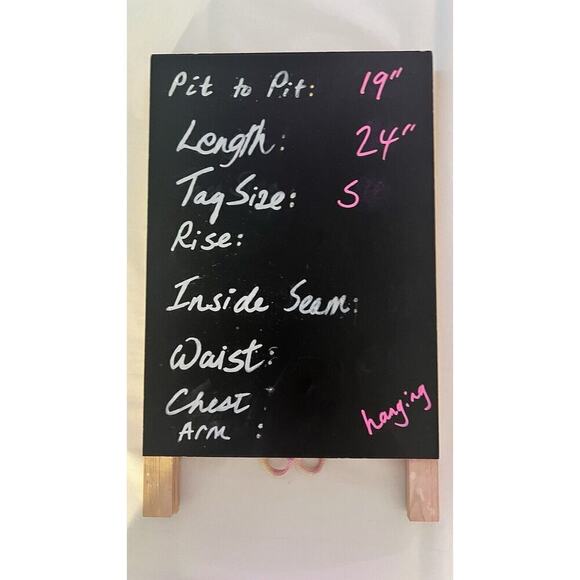 Pit to Pit: 19"
Length: 24"
Tag Size: S
Rise:
Inside Seam:
Waist:
Chest
Arm :
hanging